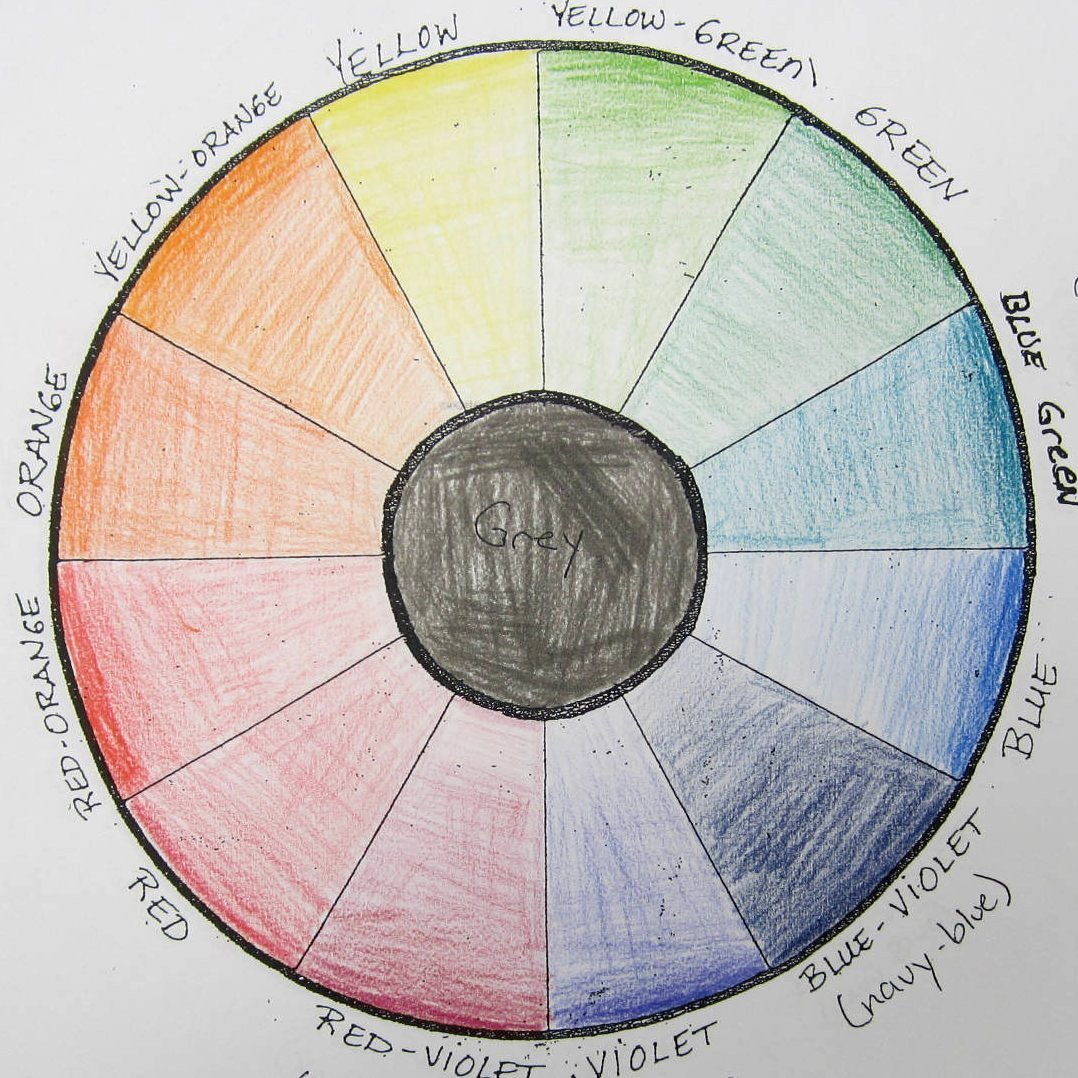 YELLOW
YELLOW-GREEN
GREEN
BLUE GREEN
BLUE
BLUE-VIOLET
(navy-blue)
VIOLET
RED-VIOLET
RED
RED-ORANGE
ORANGE
YELLOW-ORANGE
Grey